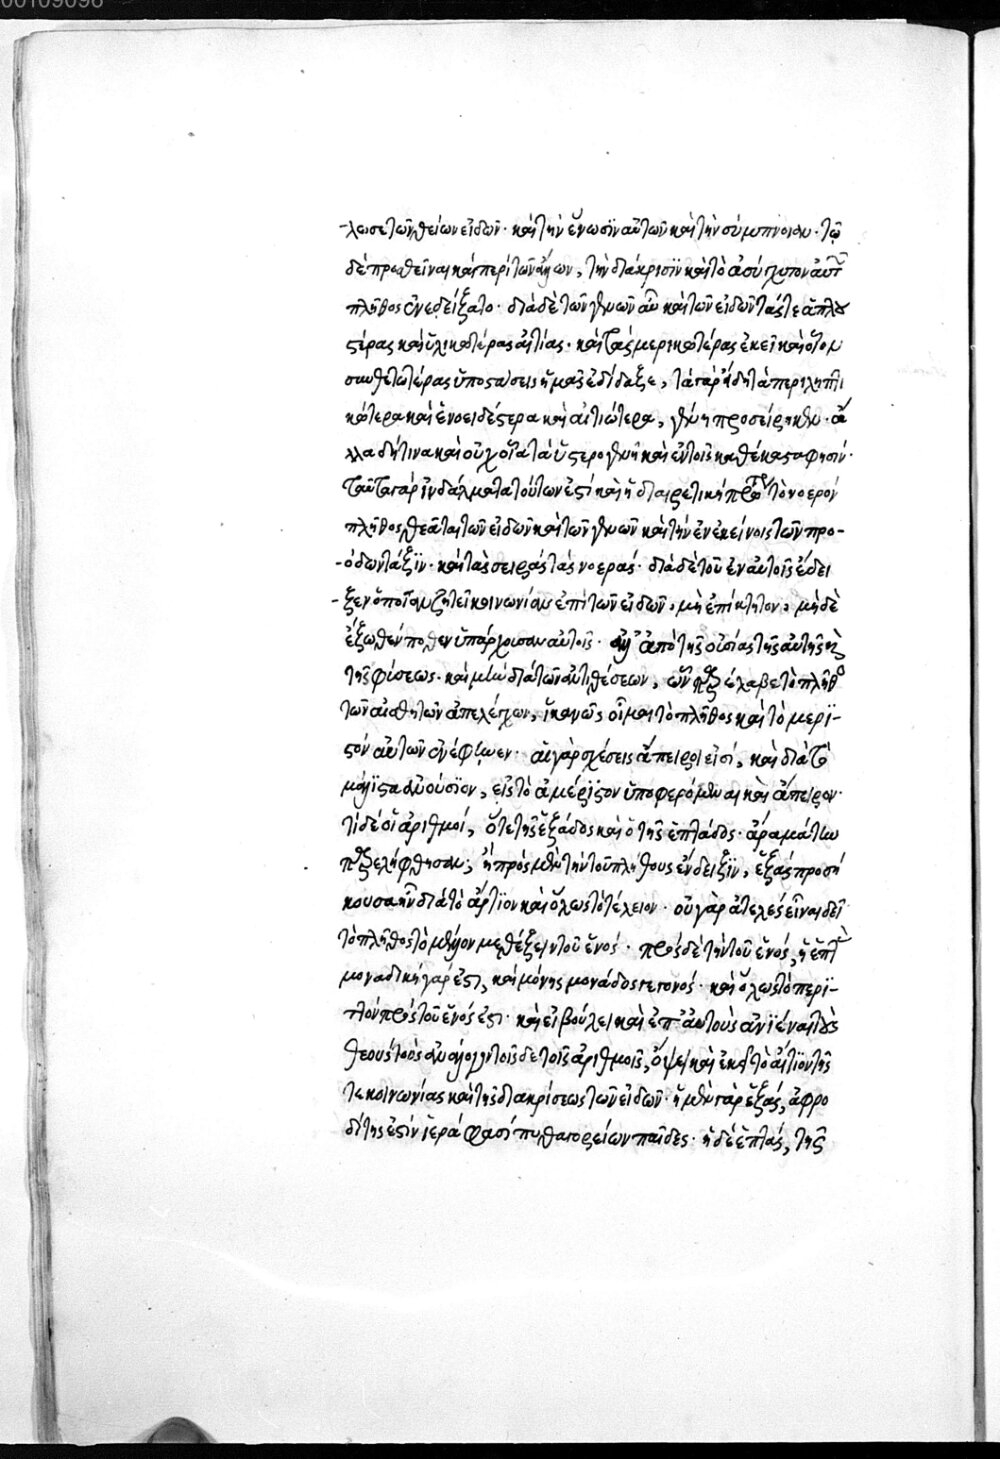 00109098
-λωσε τῶν θείων εἰδῶν· καὶ τὴν ἕνωσιν αὐτῶν καὶ τὴν σύμπνοιαν· τῷ
δὲ προθεῖναι καὶ περὶ τῶν ἄλλων, τὴν διάκρισιν καὶ τὸ ἀσύγχυτον αὐτ
πλῆθος ἀνεδείξατο· διὰ δὲ τῶν γενῶν αὖ καὶ τῶν εἰδῶν τάς τε ἁπλου
στέρας καὶ ὑλικωτέρας αἰτίας· καὶ τὰς μερικωτέρας ἐκεῖ καὶ οἷον
συνθετωτέρας ὑποστάσεις ἡμᾶς ἐδίδαξε, τὰ γὰρ ἤδη τὰ περιληπτι
κώτερα καὶ ἑνοειδέστερα καὶ αἰτιώτερα, γένη προσείρηκεν· ἀ
λλα δή τινα καὶ οὐχ οἷα τὰ ὑστερογενῆ καὶ ἐν τοῖς καθέκαστά φησιν·
ταῦτα γὰρ ἰνδάλματα τούτων ἐστὶ καὶ ἡ διαιρετικὴ πρὸ τὸ νοερὸν
πλῆθος θεᾶται τῶν εἰδῶν καὶ τῶν γενῶν καὶ τὴν ἐν ἐκείνοις τῶν προ-
-όδων τάξιν· καὶ τὰς σειρὰς τὰς νοεράς· διὰ δὲ τοῦ ἐν αὐτοῖς ἔδει
-ξεν ὁποίαν ζητεῖ κοινωνίαν ἐπὶ τῶν εἰδῶν· μὴ ἐπίκτητον· μὴ δὲ
ἔξωθέν ποθεν ὑπάρχουσαν αὐτοῖς· ἀλλ' ἀπὸ τῆς οὐσίας τῆς αὐτῆς καὶ
τῆς φύσεως· καὶ μὴν διὰ τῶν ἀντιθέσεων, ὧν παρέλαβε τὸ πλῆθος
τῶν αἰσθητῶν ἀπελέγχων, ἱκανῶς οἶμαι τὸ πλῆθος καὶ τὸ μερι-
στὸν αὐτῶν ἀνέφηνεν· αἱ γὰρ σχέσεις ἄπειροι εἰσί, καὶ διὰ τὸ
μάλιστα ἀνούσιον, εἰς τὸ ἀμέριστον ὑποφερόμεναι καὶ ἄπειρον·
τί δὲ οἱ ἀριθμοί, ὅ τε τῆς ἑξάδος καὶ ὁ τῆς ἑπτάδος· ἆρα μάτην
παρελήφθησαν; ἢ πρὸς μὲν τὴν τοῦ πλήθους ἔνδειξιν, ἑξὰς προσή
κουσα ἦν διὰ τὸ ἄρτιον καὶ ὅλως τὸ τέλειον· οὐ γὰρ ἀτελὲς εἶναι δεῖ
τὸ πλῆθος τὸ μέλλον μεθέξειν τοῦ ἑνός· πρὸς δὲ τὴν τοῦ ἑνός, ἡ ἑπτὰ
μοναδικὴ γάρ ἐστι, καὶ μόνης μονάδος γεγονός· καὶ ὅλως τὸ περι-
ττὸν πρὸς τοῦ ἑνός ἐστι· καὶ εἰ βούλει καὶ ἐπ' αὐτοὺς ἀνιέναι τοὺς
θεοὺς τοὺς ἀναλογοῦντας τοῖσδε τοῖς ἀριθμοῖς, ὄψει καὶ ἐκεῖ τὸ αἴτιον τῆς
τε κοινωνίας καὶ τῆς διακρίσεως τῶν εἰδῶν· ἡ μὲν γὰρ ἑξάς, ἀφρο
δίτης ἐστὶν ἱερά φασὶ πυθαγορείων παῖδες· ἡ δὲ ἑπτάς, τῆς